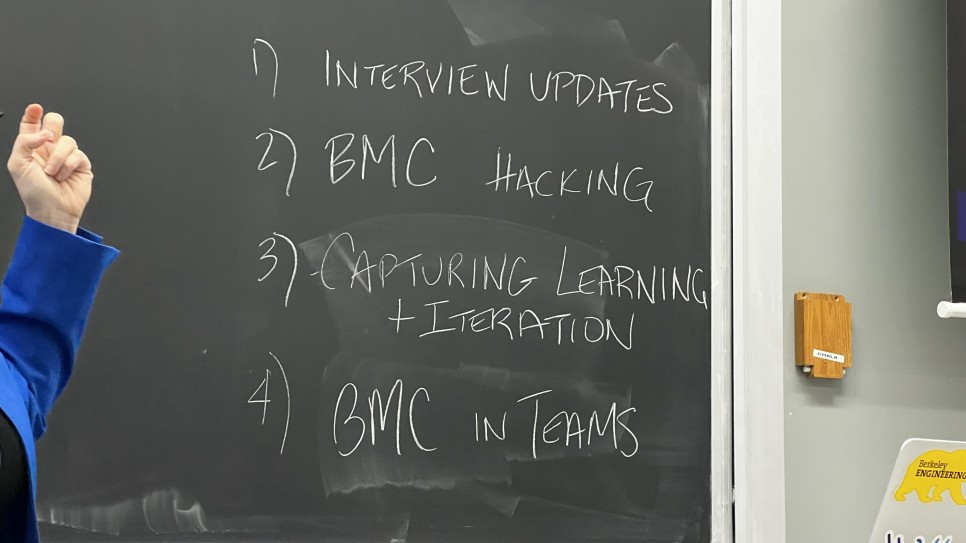 1) INTERVIEW UPDATES
2) BMC HACKING
3) CAPTURING LEARNING
+ ITERATION
4) BMC IN TEAMS
CHALK
Berkeley
ENGINEERING